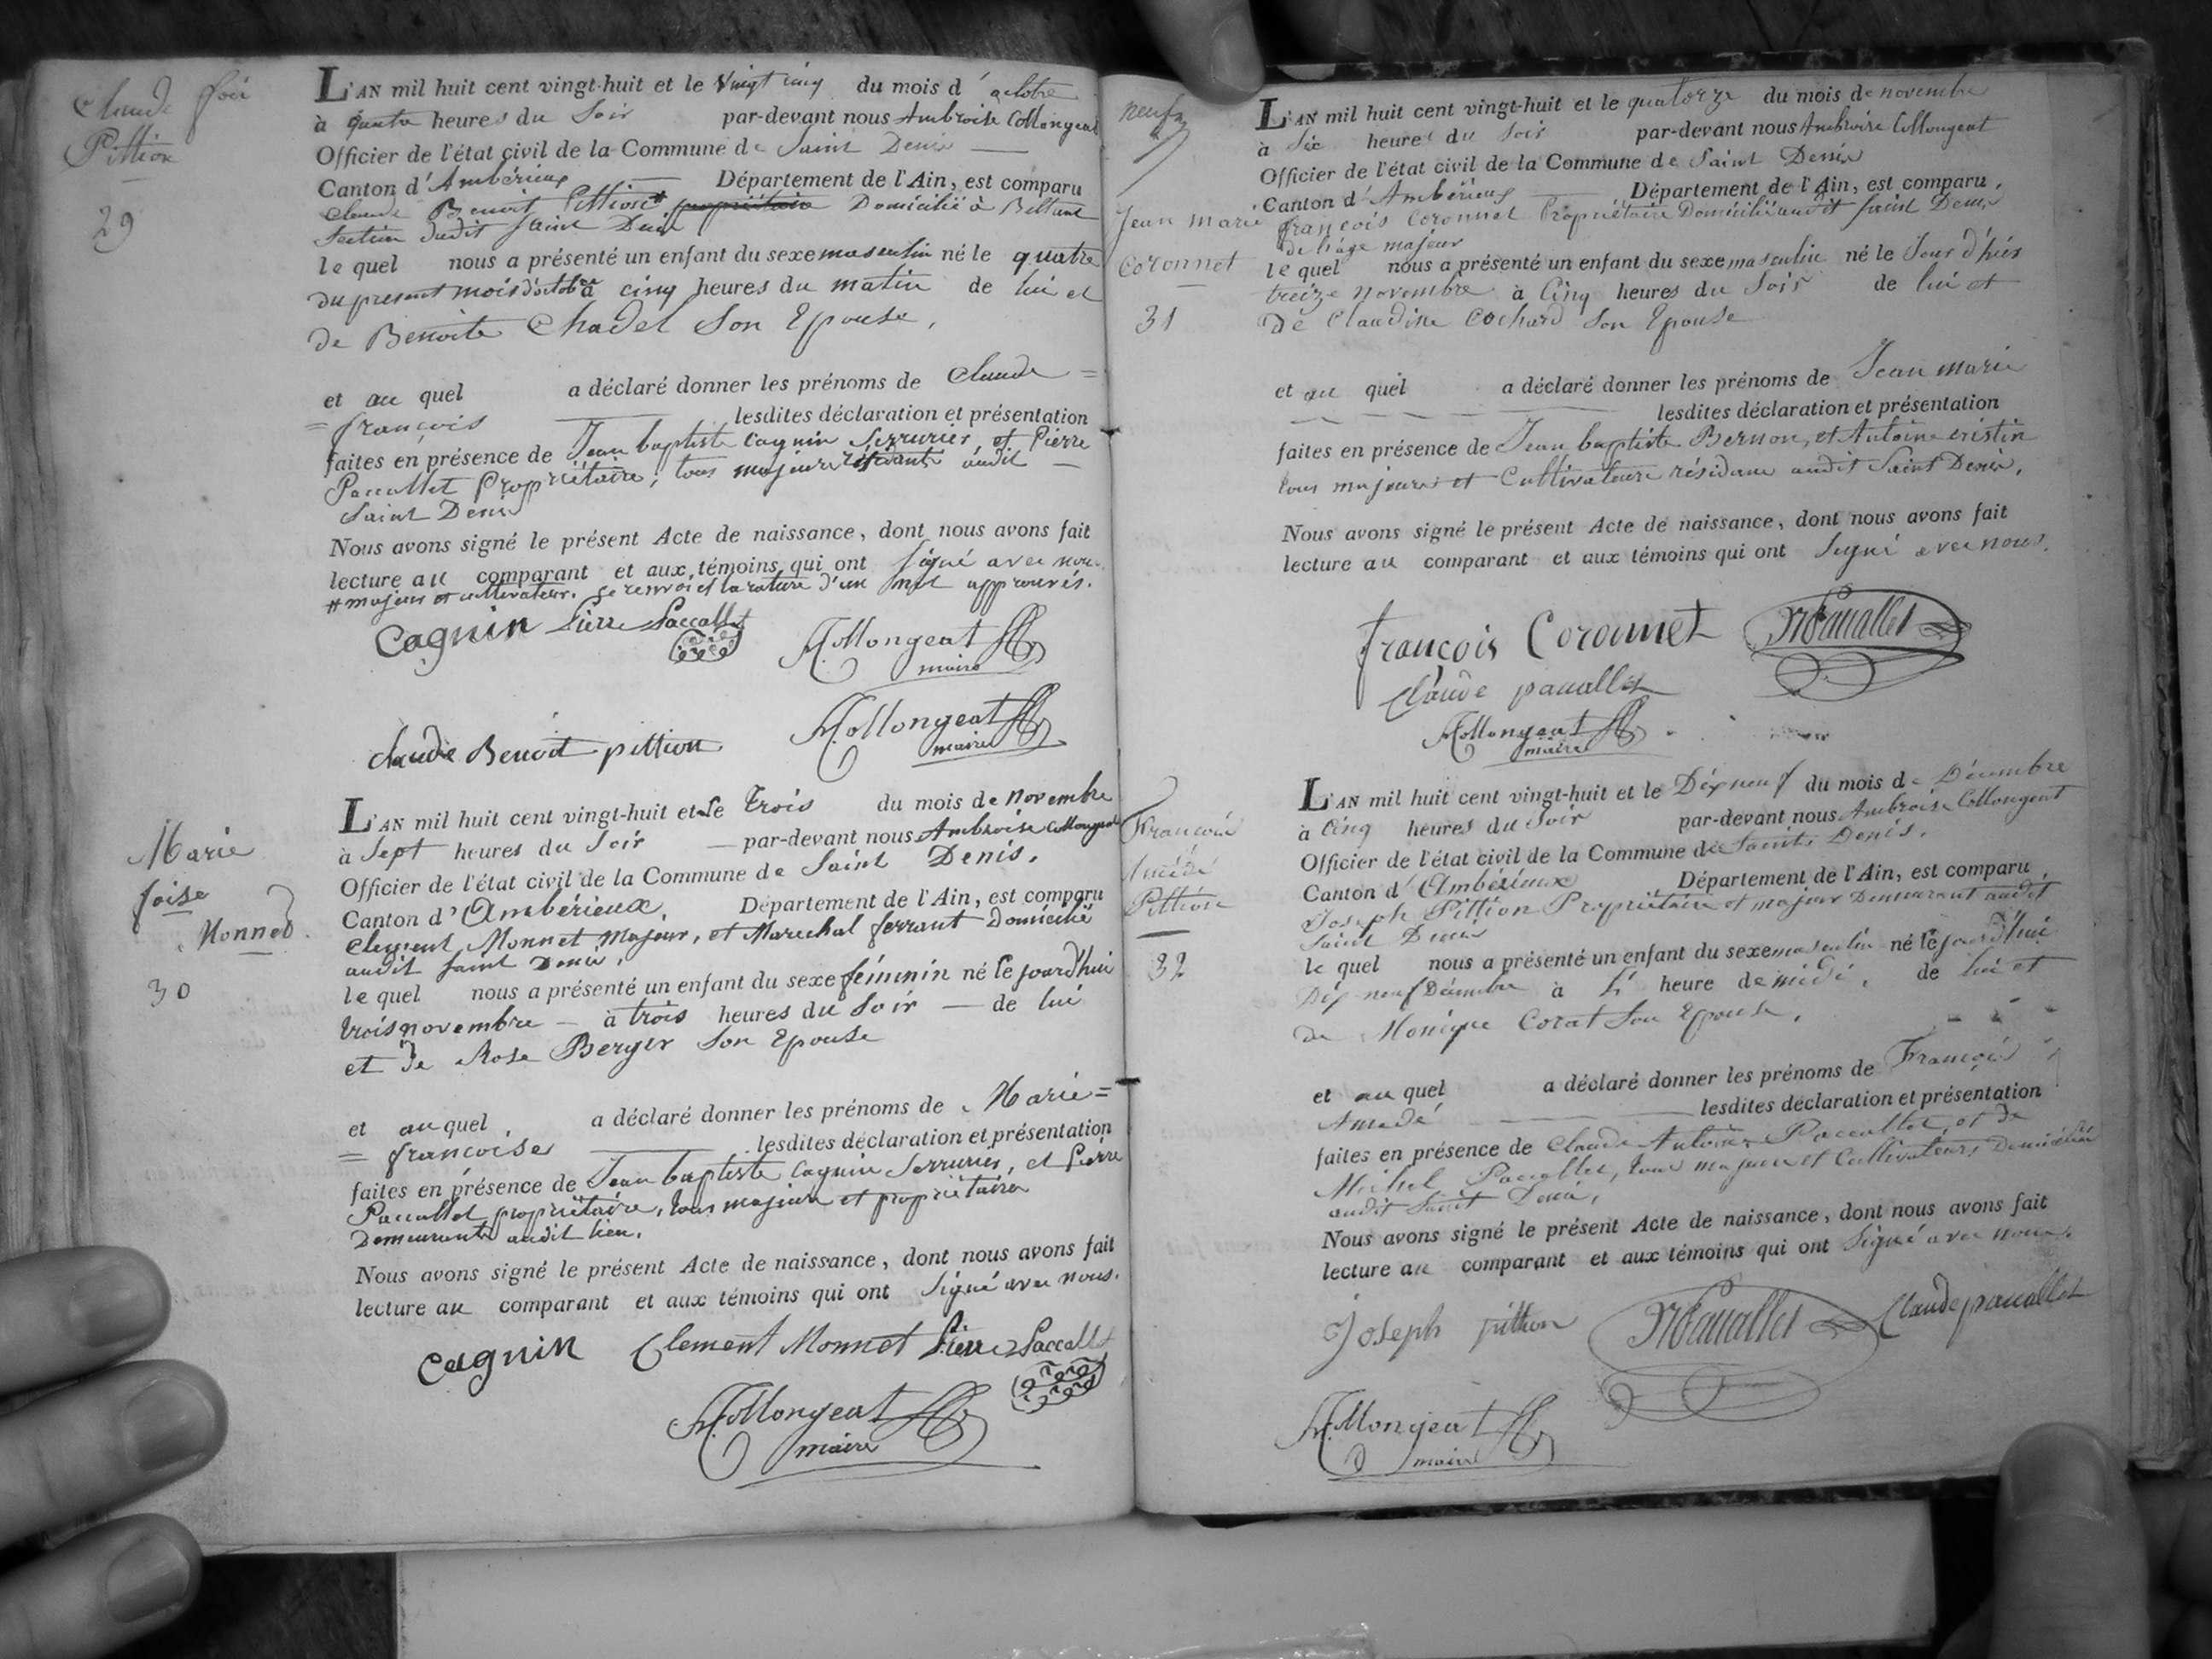 Claude fois
Pittion
29
L'AN mil huit cent vingt-huit et le Vingt cinq du mois d'octobre
à quatre heures du Soir par-devant nous Ambroise Collongeat
Officier de l'état civil de la Commune de Saint Denis
Canton d'Ambérieux Département de l'Ain, est comparu
Claude Benoit Pittion # propriétaire Domicilié à
Section dudit Saint Denis
le quel nous a présenté un enfant du sexe masculin né le quatre
du present mois d'octobre à cinq heures du matin de lui et
de Benoite Chadel Son Epouse,
et au quel a déclaré donner les prénoms de Claude =
= françois lesdites déclaration et présentation
faites en présence de Jean baptiste Cagnin Serrurier, et Pierre
Paccallet Propriétaire, tous majeurs résidants audit
Saint Denis
Nous avons signé le présent Acte de naissance, dont nous avons fait
lecture au comparant et aux témoins qui ont signé avec nous.
# majeur et cultivateur. ce renvoi et la rature d'un mot approuvés.
Cagnin Pierre Paccallet
Collongeat
maire
Claude Benoit pittion
Collongeat
maire
Marie
foise
Monnet
30
L'AN mil huit cent vingt-huit et le trois du mois de novembre
à Sept heures du Soir par-devant nous Ambroise Collongeat
Officier de l'état civil de la Commune de Saint Denis.
Canton d'Ambérieux, Département de l'Ain, est comparu
Clement Monnet majeur, et Marechal ferrant Domicilié
audit Saint Denis,
le quel nous a présenté un enfant du sexe féminin né le jourd'hui
trois novembre à trois heures du Soir de lui
et de Rose Berger Son Epouse
et au quel a déclaré donner les prénoms de Marie =
= françoise lesdites déclaration et présentation
faites en présence de Jean baptiste Cagnin Serrurier, et Pierre
Paccallet propriétaire, tous majeurs et propriétaires
Demeurants audit lieu.
Nous avons signé le présent Acte de naissance, dont nous avons fait
lecture au comparant et aux témoins qui ont Signé avec nous.
Cagnin Clement Monnet Pierre Paccallet
Collongeat
maire
neuf
Jean marie
Coronnet
31
L'AN mil huit cent vingt-huit et le quatorze du mois de novembre
à Six heures du Soir par-devant nous Ambroise Collongeat
Officier de l'état civil de la Commune de Saint Denis
Canton d'Ambérieux Département de l'Ain, est comparu,
françois Coronnet Propriétaire Domicilié audit Saint Denis
de l'âge majeur
le quel nous a présenté un enfant du sexe masculin né le Jour d'hier
treize novembre à Cinq heures du Soir de lui et
de Claudine Cochard Son Epouse
et au quel a déclaré donner les prénoms de Jean marie
lesdites déclaration et présentation
faites en présence de Jean baptiste Bernon, et Antoine cristin
tous majeurs et Cultivateurs résidans audit Saint Denis,
Nous avons signé le présent Acte de naissance, dont nous avons fait
lecture au comparant et aux témoins qui ont Signé avec nous.
françois Coronnet
Claude paccallet
Collongeat
maire
François
Amédé
Pittion
32
L'AN mil huit cent vingt-huit et le Dix neuf du mois de Décembre
à Cinq heures du Soir par-devant nous Ambroise Collongeat
Officier de l'état civil de la Commune de Saint Denis.
Canton d'Ambérieux Département de l'Ain, est comparu
Joseph Pittion Propriétaire et majeur Demeurant audit
Saint Denis
le quel nous a présenté un enfant du sexe masculin né le jourd'hui
Dix neuf Décembre à heure de midi, de lui et
de Monique Corat Son Epouse,
et au quel a déclaré donner les prénoms de François
Amedé lesdites déclaration et présentation
faites en présence de Claude Antoine Paccallet, et de
Michel Paccallet, tous majeurs et Cultivateurs Domiciliés
audit Saint Denis,
Nous avons signé le présent Acte de naissance, dont nous avons fait
lecture au comparant et aux témoins qui ont Signé avec nous.
Joseph pittion Claude paccallet
Collongeat
maire